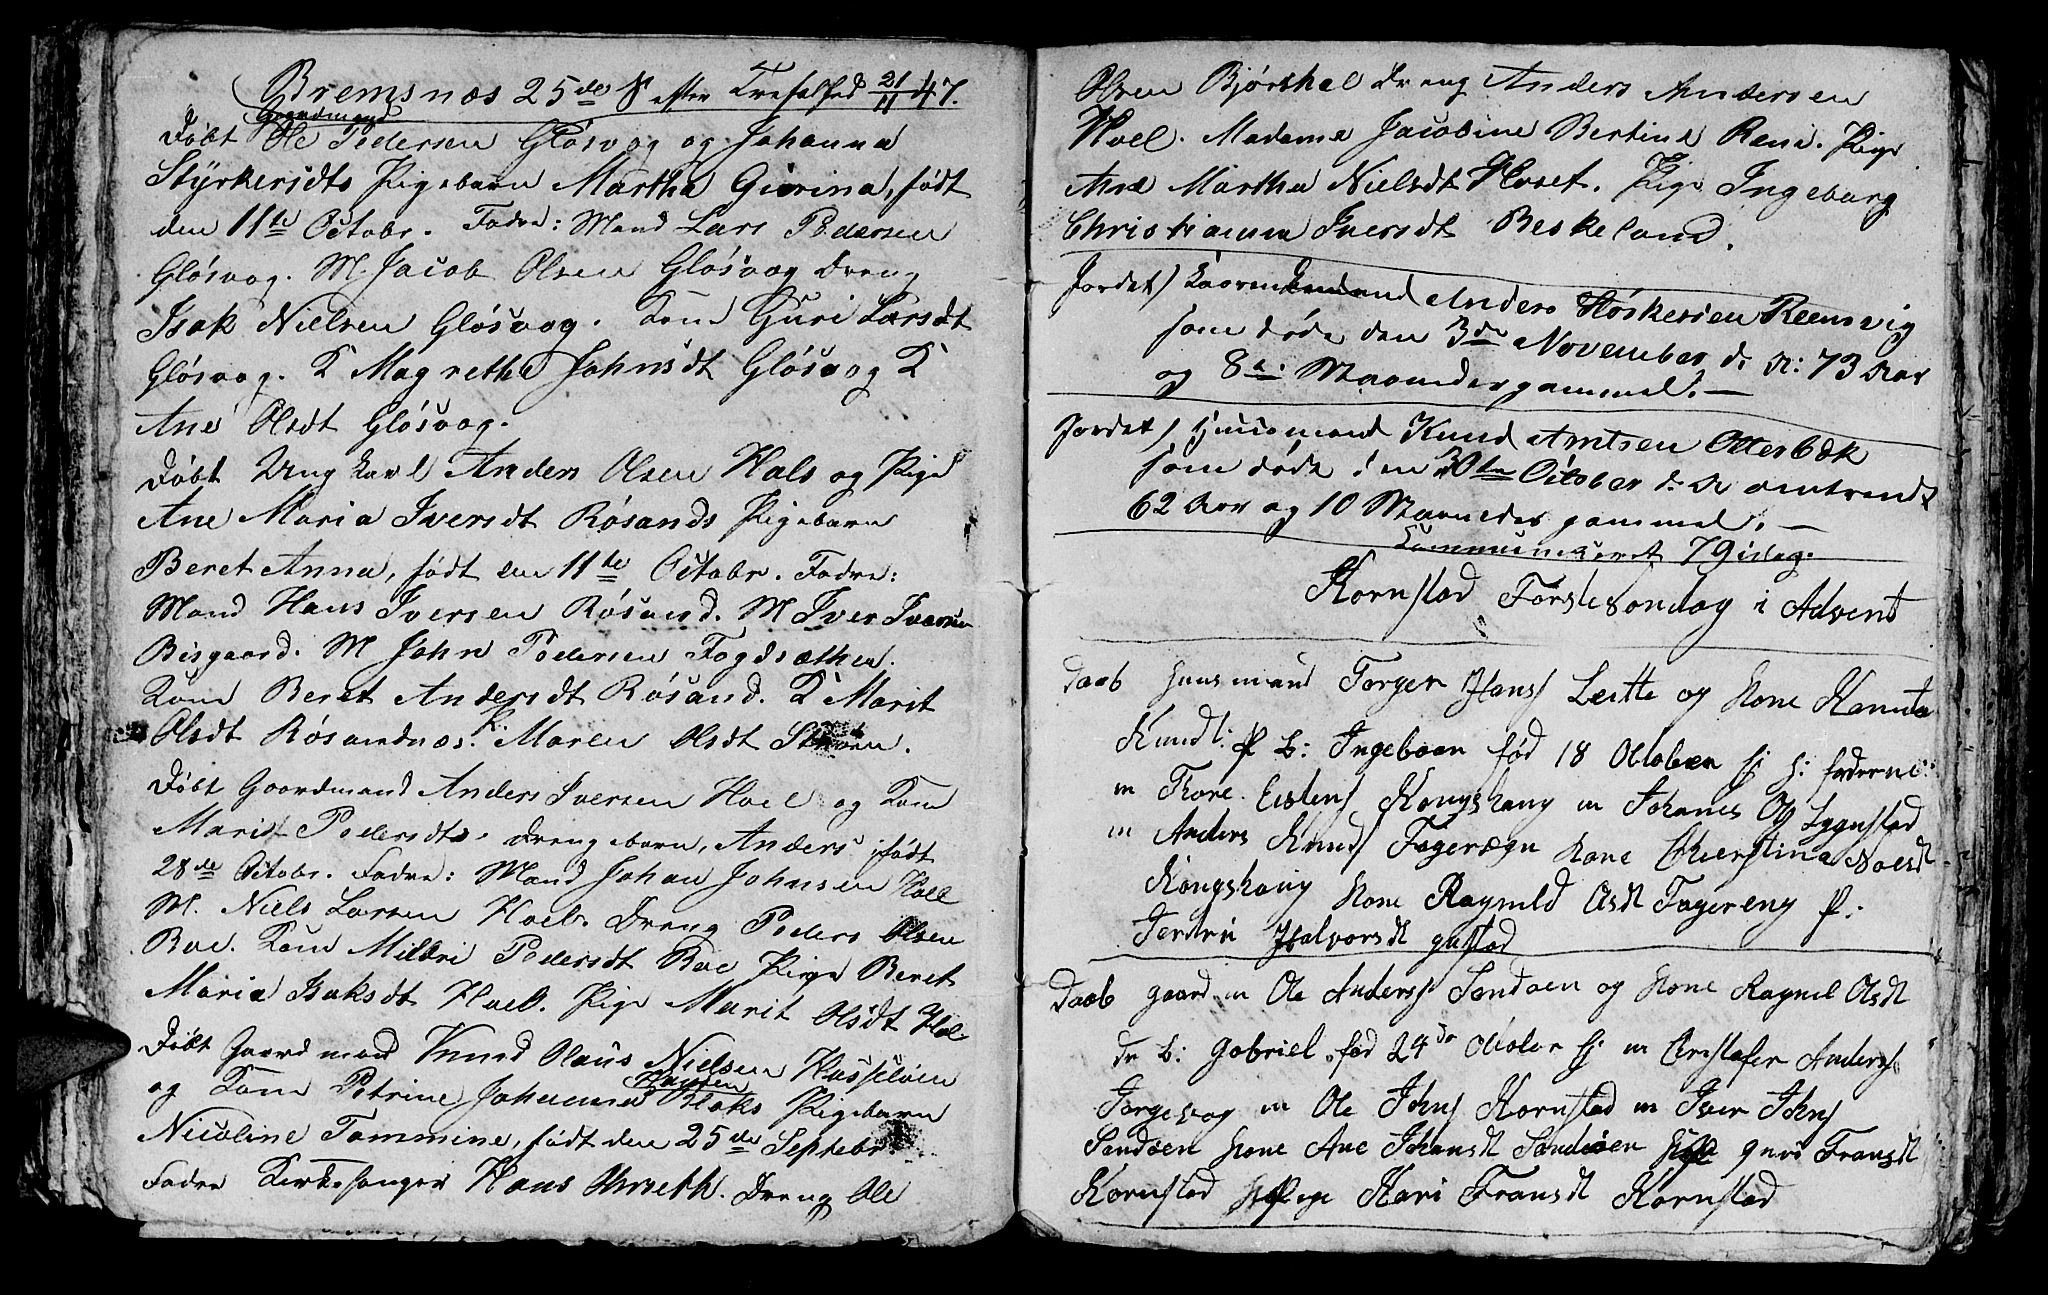 Bremsnæs 25de S efter Trefoldhed 21/11 47.
Gaardmand
Døbt Ole Pedersen Gløsvog og Johanna
Styrkersdts Pigebarn Martha Gurina, født
den 11te Octobr. Fadre: Mand Lars Pedersen
Gløsvog. M Jacob Olsen Gløsvog Dreng
Isak Nielsen Gløsvog. Kone Guri Larsdt
Gløsvog. K Magrethe Johnsdt Gløsvog K
Ane Olsdt Gløsvog.
Døbt Ungkarl Anders Olsen Hals og Pige
Ane Maria Iversdt Røsands Pigebarn
Beret Anna, født den 11te Octobr. Fadre:
Mand Hans Iversen Røsand. M Iver Iversen
Bisgaard. M John Pedersen Fogdsæther.
Kone Beret Andersdt Røsand. K Marit
Olsdt Røsandnæs. K. Maren Olsdt
Døbt Gaardmand Anders Iversen Hoel og Kone
Marit Pedersdts Drengebarn, Anders født
28de Octobr. Fadre: Mand Johan Johnsen Hoel
M. Niels Larsen Hoel. Dreng Peder Olsen
Boe. Kone Mildri Pedersdt Boe Pige Beret
Maria Isaksdt Hoel. Pige Marit Olsdt Hoel
Døbt Gaardmand Knud Olaus Nielsen Hasseløen
og Kone Petrine Johanna Hansen Bloks Pigebarn
Nicoline Tommine, født den 25de Septebr
Fadre Kirkesanger Hans Dreng Ole
Olsen Bjørthal Dreng Anders Andersen
Hoel. Madame Jacobine Bertine Pige
Ane Martha Nielsdt Hoset. Pige Ingeborg
Christianna Iversdt Beskeland.
Jordet) Anders Høskersen Reensvig
som døde den 3de November d. A: 73 Aar
og 8te Maaneder gammel. —
Jordet) Huusmand Knud Amtsen Otterbæk
som døde den 30te October d. A omtrendt
62 Aar og 10 Maaneder gammel. —
Communiceret 79 idag.
Kornstad Første Søndag i Advent
Daab Huusmand Torger Hans Leitte og Kone
Knudt: P B: Ingeboer fød 18 October hj
m Tore Eistens Kongshaug m Johanes Ols Lygnstad
m Anders Knuds Fagerægn Kone Cherstina Nielsdt
Kongshaug Kone Ragnild Olsdt Fagereng P:
Halvorsdt Gustad
Daab Gaard m Ole Anders Sandøen og Kone Ragnil Olsdt
dr b: Gabriel fød 24de October hj m Crestofer Anders
m Ole Johns Kornstad m Iver Johns
Sandøen Kone Ane Johansdt Sandøen Guri Fransdt
Kornstad Pige Kari Fransdt Kornstad